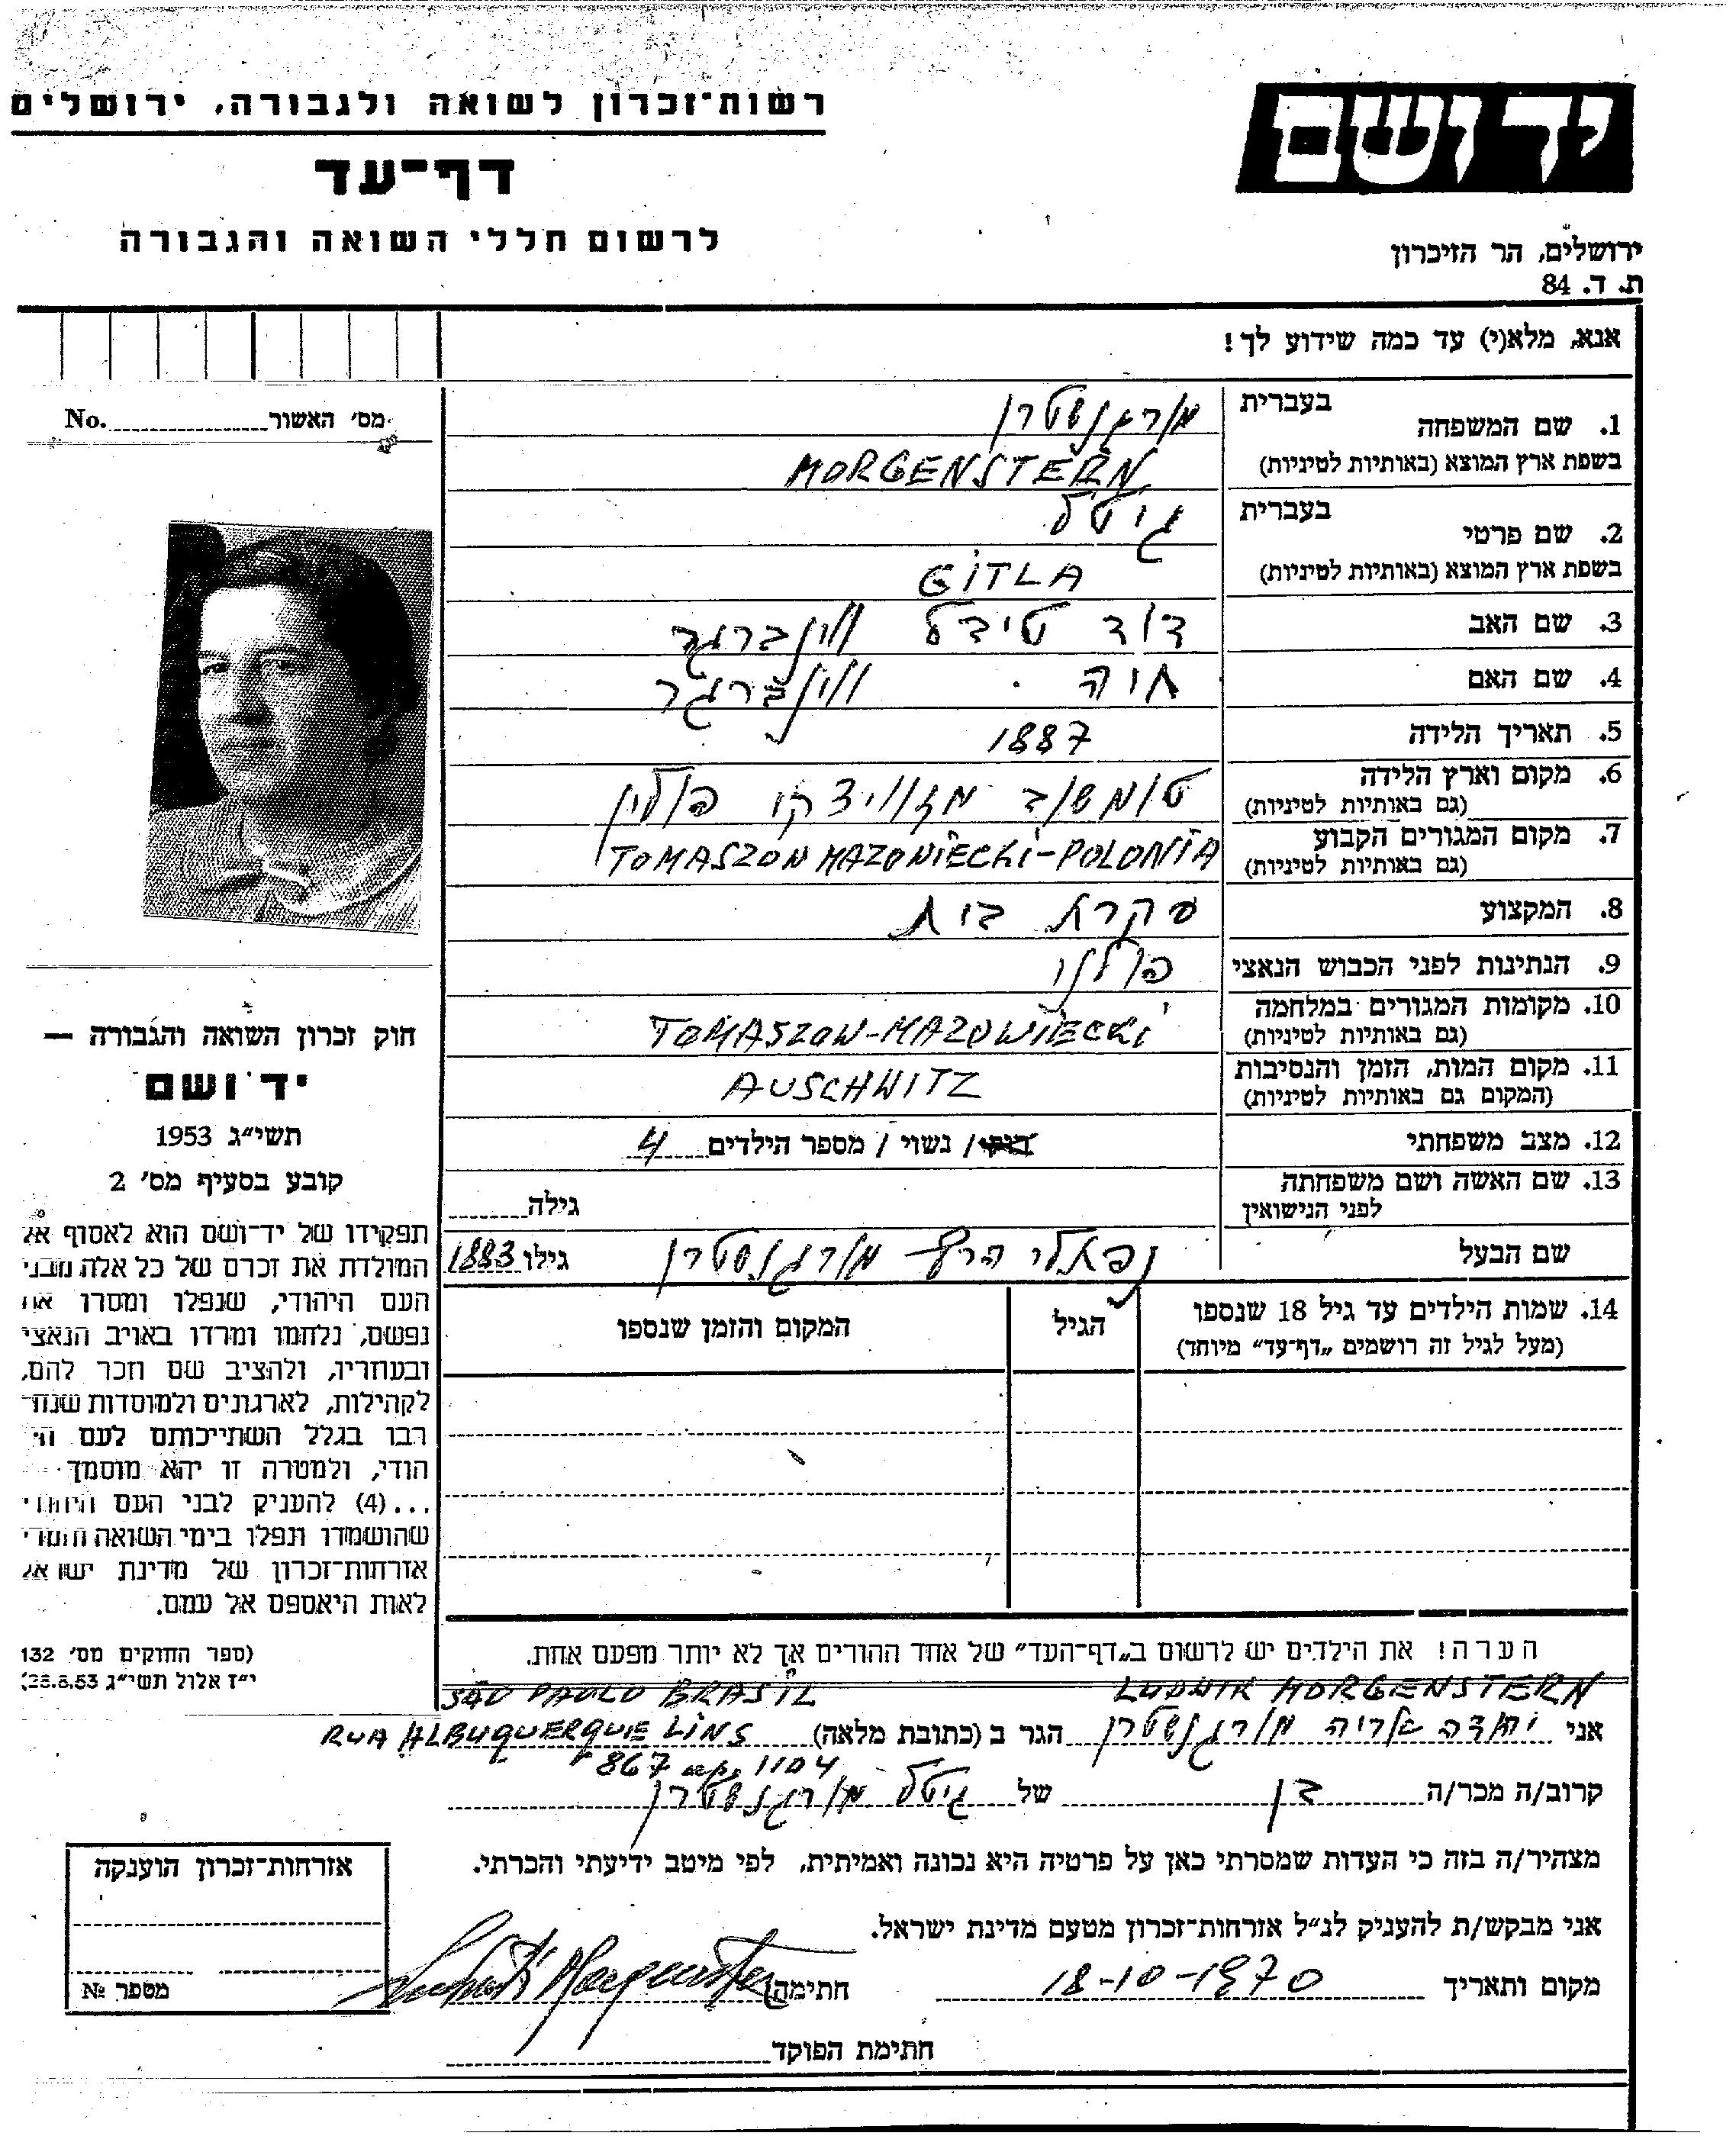 רשות־זכרון לשואה ולגבורה, ירושלים
דף־עד
לרשום חללי השואה והגבורה
יד ושם
ירושלים, הר הזיכרון
ת. ד. 84
אנא, מלא(י) עד כמה שידוע לך!
מס׳ האשור No.
1. שם המשפחה בעברית מורגנשטרן
בשפת ארץ המוצא (באותיות לטיניות) MORGENSTERN
2. שם פרטי בעברית גיטל
בשפת ארץ המוצא (באותיות לטיניות) GITLA
3. שם האב דוד
4. שם האם חוה
5. תאריך הלידה 1887
6. מקום וארץ הלידה טומשוב מזוויצקי פולין
(גם באותיות לטיניות)
7. מקום המגורים הקבוע TOMASZON MAZONIECKI-POLONIA
(גם באותיות לטיניות)
8. המקצוע עקרת בית
9. הנתינות לפני הכבוש הנאצי פולני
10. מקומות המגורים במלחמה TOMASZOW-MAZOWIECKI
(גם באותיות לטיניות)
11. מקום המות, הזמן והנסיבות AUSCHWITZ
(המקום גם באותיות לטיניות)
12. מצב משפחתי / נשוי / מספר הילדים 4
13. שם האשה ושם משפחתה
לפני הנישואין גילה
שם הבעל נפתלי הרץ מורגנשטרן גילו 1883
14. שמות הילדים עד גיל 18 שנספו הגיל המקום והזמן שנספו
(מעל לגיל זה רושמים „דף־עד״ מיוחד)
חוק זכרון השואה והגבורה —
יד ושם
תשי״ג 1953
קובע בסעיף מס׳ 2
תפקידו של יד־ושם הוא לאסוף אל
המולדת את זכרם של כל אלה מבני
העם היהודי, שנפלו ומסרו את
נפשם, נלחמו ומרדו באויב הנאצי
ובעוזריו, ולהציב שם וזכר להם,
לקהילות, לארגונים ולמוסדות שנח־
רבו בגלל השתייכותם לעם הי־
הודי, ולמטרה זו יהא מוסמך
...(4) להעניק לבני העם היהודי
שהושמדו ונפלו בימי השואה והמרי
אזרחות־זכרון של מדינת ישראל
לאות היאספם אל עמם.
(ספר החוקים מס׳ 132
י״ז אלול תשי״ג 28.8.53)
הערה! את הילדים יש לרשום ב„דף־העד״ של אחד ההורים אך לא יותר מפעם אחת.
LUDWIK MORGENSTERN SÃO PAULO BRASIL
אני יהודה אריה מורגנשטרן הגר ב (כתובת מלאה) RUA ALBUQUERQUE LINS
867 ap. 1104
קרוב/ה מכר/ה בן של גיטל מורגנשטרן
מצהיר/ה בזה כי העדות שמסרתי כאן על פרטיה היא נכונה ואמיתית, לפי מיטב ידיעתי והכרתי.
אני מבקש/ת להעניק לנ״ל אזרחות־זכרון מטעם מדינת ישראל.
מקום ותאריך 18-10-1970 חתימה Ludwik Morgenstern
חתימת הפוקד
אזרחות־זכרון הוענקה
מספר №